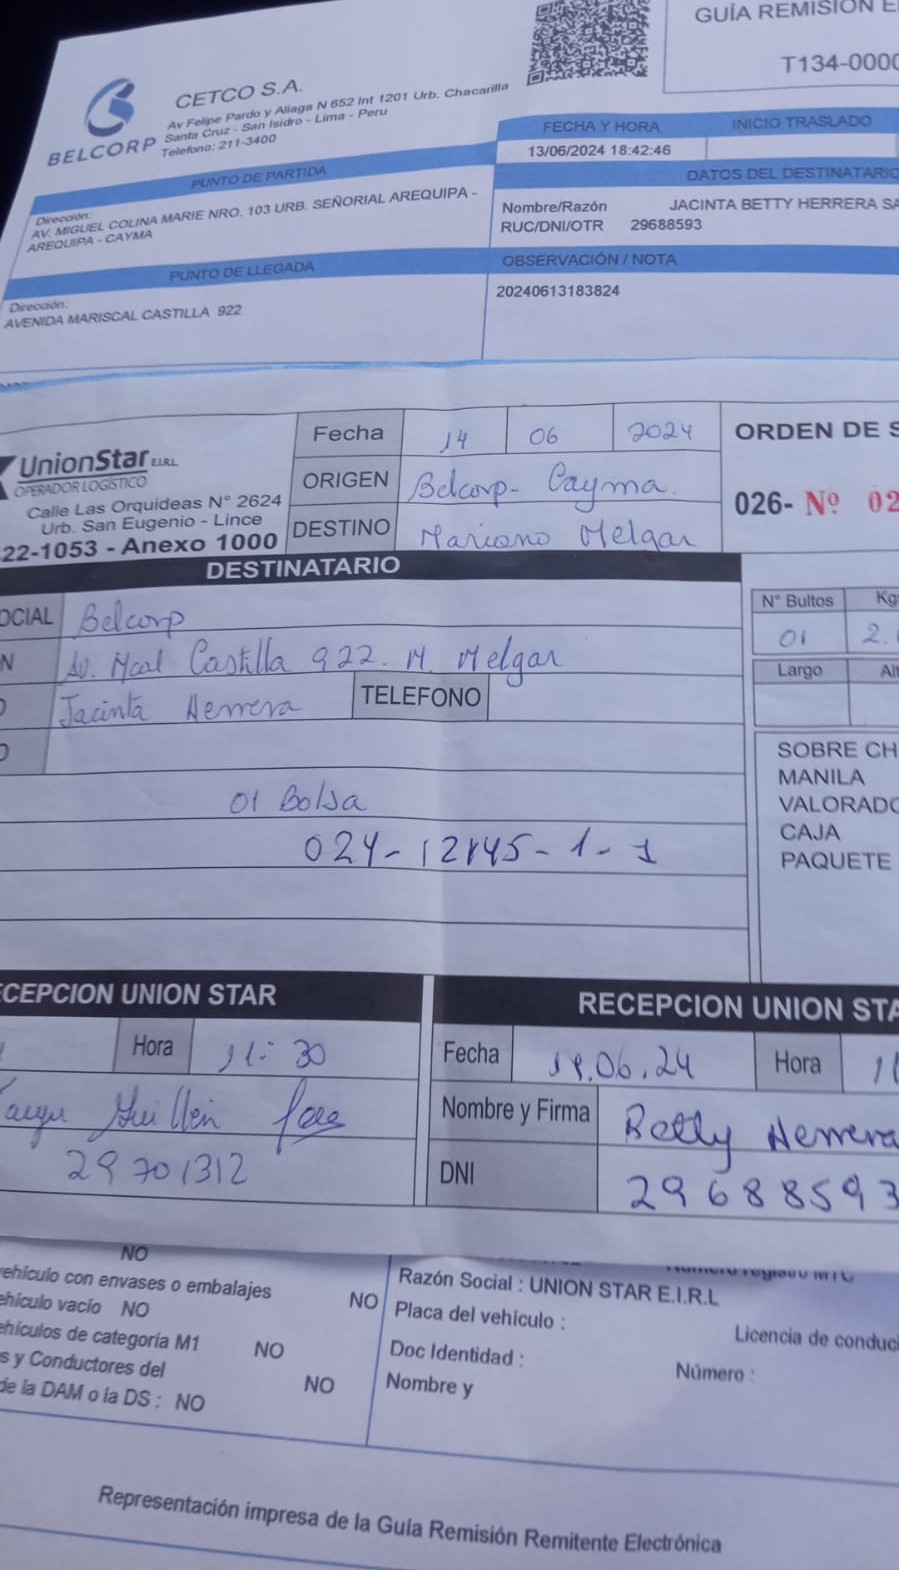 GUÍA REMISIÓN E
T134-0000
BELCORP
CETCO S.A.
Av Felipe Pardo y Aliaga N 652 Int 1201 Urb. Chacarilla
Santa Cruz - San Isidro - Lima - Peru
Telefono: 211-3400
FECHA Y HORA
INICIO TRASLADO
13/06/2024 18:42:46
PUNTO DE PARTIDA
DATOS DEL DESTINATARIO
Dirección:
AV. MIGUEL COLINA MARIE NRO. 103 URB. SEÑORIAL AREQUIPA -
AREQUIPA - CAYMA
Nombre/Razón JACINTA BETTY HERRERA SA
RUC/DNI/OTR 29688593
PUNTO DE LLEGADA
OBSERVACIÓN / NOTA
Dirección:
AVENIDA MARISCAL CASTILLA 922
20240613183824
UnionStar E.I.R.L
OPERADOR LOGÍSTICO
Calle Las Orquideas N° 2624
Urb. San Eugenio - Lince
22-1053 - Anexo 1000
Fecha 14 06 2024
ORIGEN Belcorp- Cayma.
DESTINO Mariano Melgar
ORDEN DE S
026- Nº 02
DESTINATARIO
OCIAL Belcorp
N Av. Mcal Castilla 922. M. Melgar
O Jacinta Herrera TELEFONO
O
01 Bolsa
024-12145-1-1
N° Bultos Kg
01 2.
Largo Alt
SOBRE CH
MANILA
VALORADO
CAJA
PAQUETE
ECEPCION UNION STAR
Hora 11:30
Guillén
29701312
RECEPCION UNION STA
Fecha 14.06.24 Hora 11
Nombre y Firma Betty Herrera
DNI 29688593
NO
ehículo con envases o embalajes NO
ehículo vacío NO
ehículos de categoría M1 NO
s y Conductores del
de la DAM o la DS : NO NO
Número registro MTC
Razón Social : UNION STAR E.I.R.L
Placa del vehículo :
Licencia de conduci
Doc Identidad :
Número :
Nombre y
Representación impresa de la Guía Remisión Remitente Electrónica